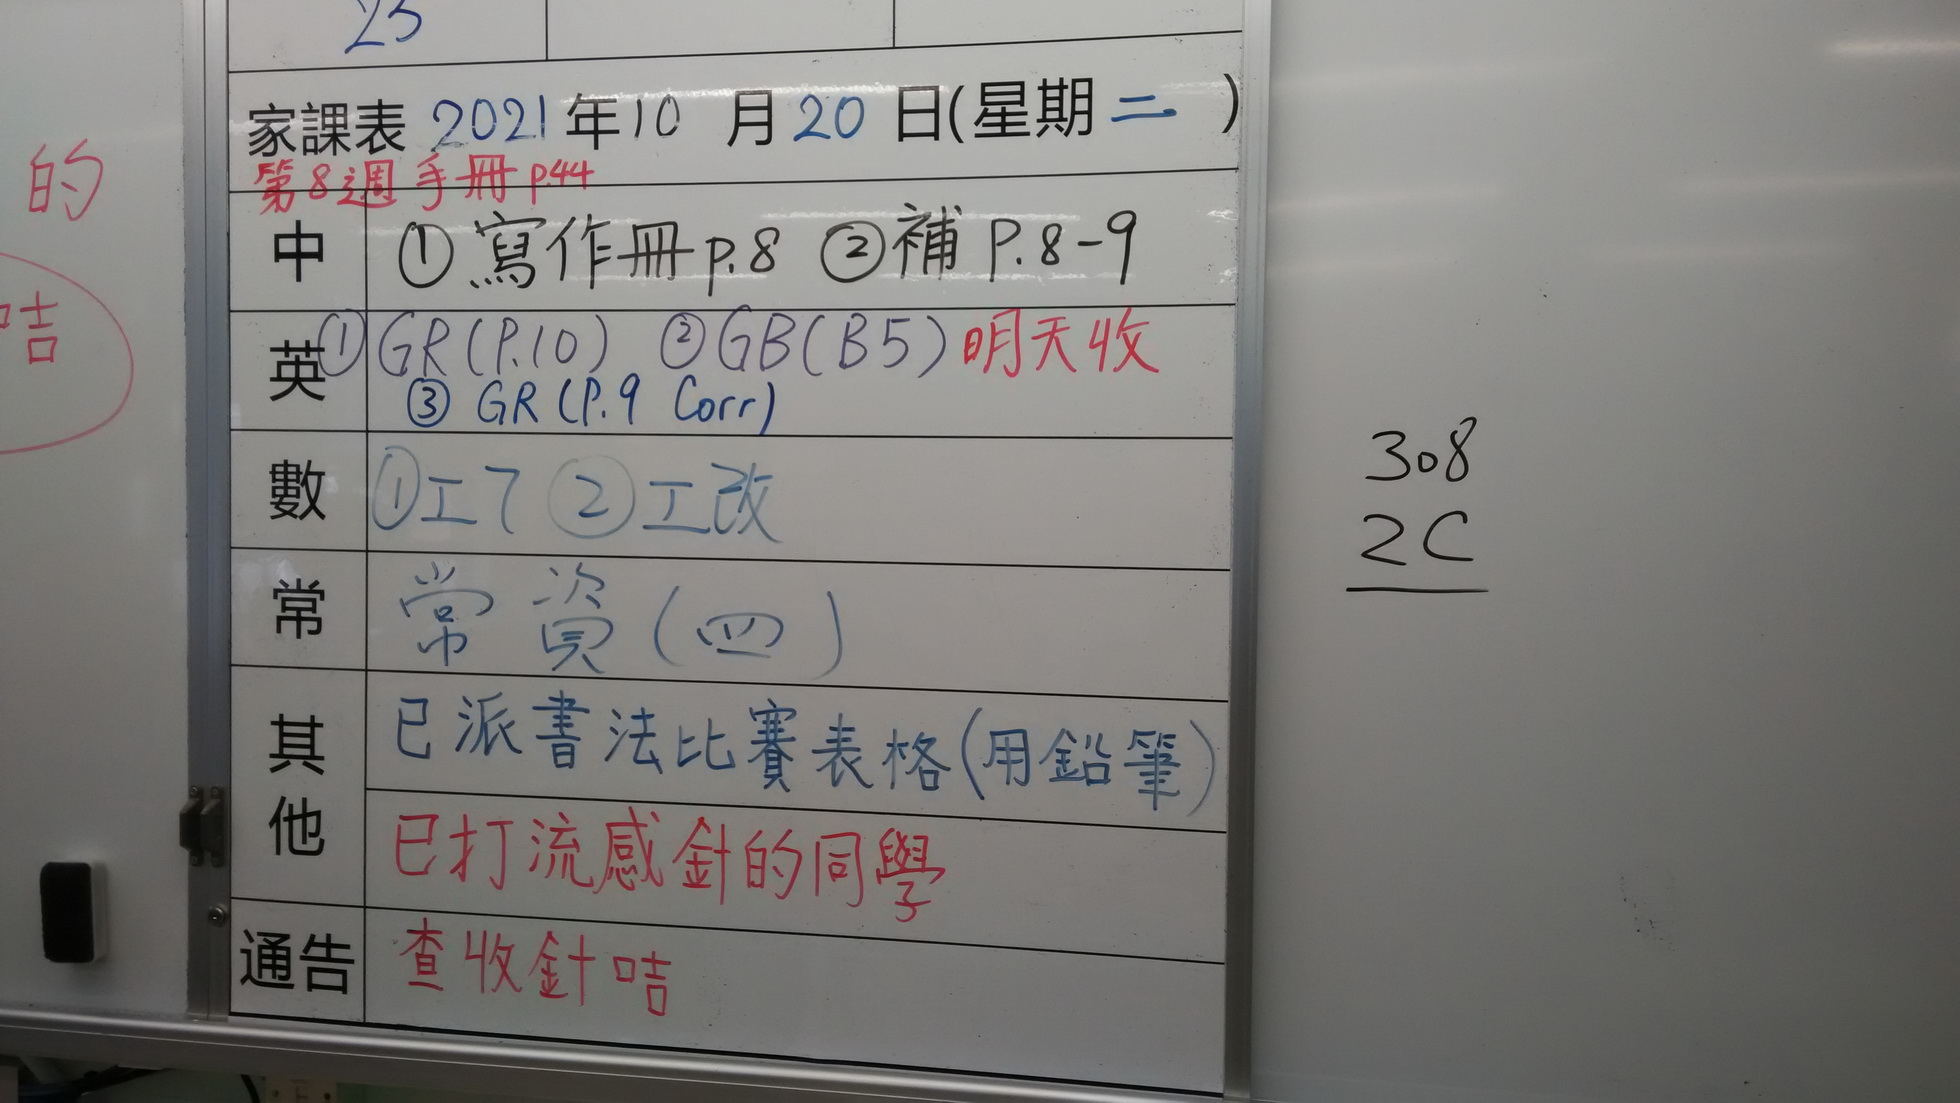 的
咭
23
家課表 2021年10月20日(星期二)
第8週手冊p.44
中 ①寫作冊p.8 ②補P.8-9
英 ①GR(P.10) ②GB(B5)明天收
③GR(P.9 Corr)
數 ①工7 ②工改
常 常資(四)
其他 已派書法比賽表格(用鉛筆)
已打流感針的同學
通告 查收針咭
308
2C